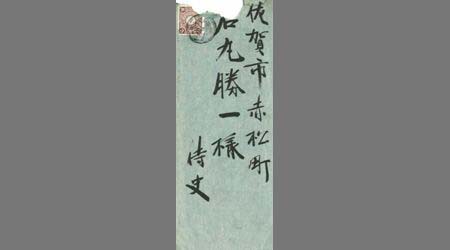 佐賀市赤松町
石丸勝一様
侍史